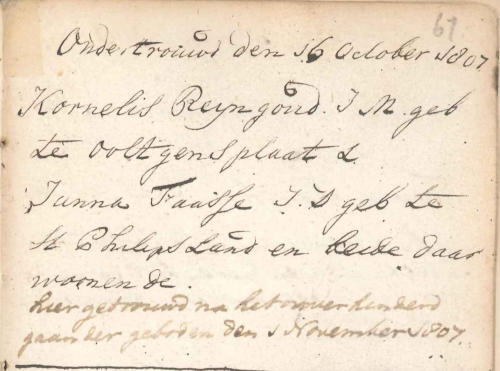 61
Ondertrouwd den 16 October 1807
Kornelis Reijngoud. J M. geb
te ooltgensplaat &
Janna Faasse J. D geb te
St Philipsland en beide daar
woonende.
hier getrouwd na het onverhinderd
gaan der geboden den 1 November 1807.